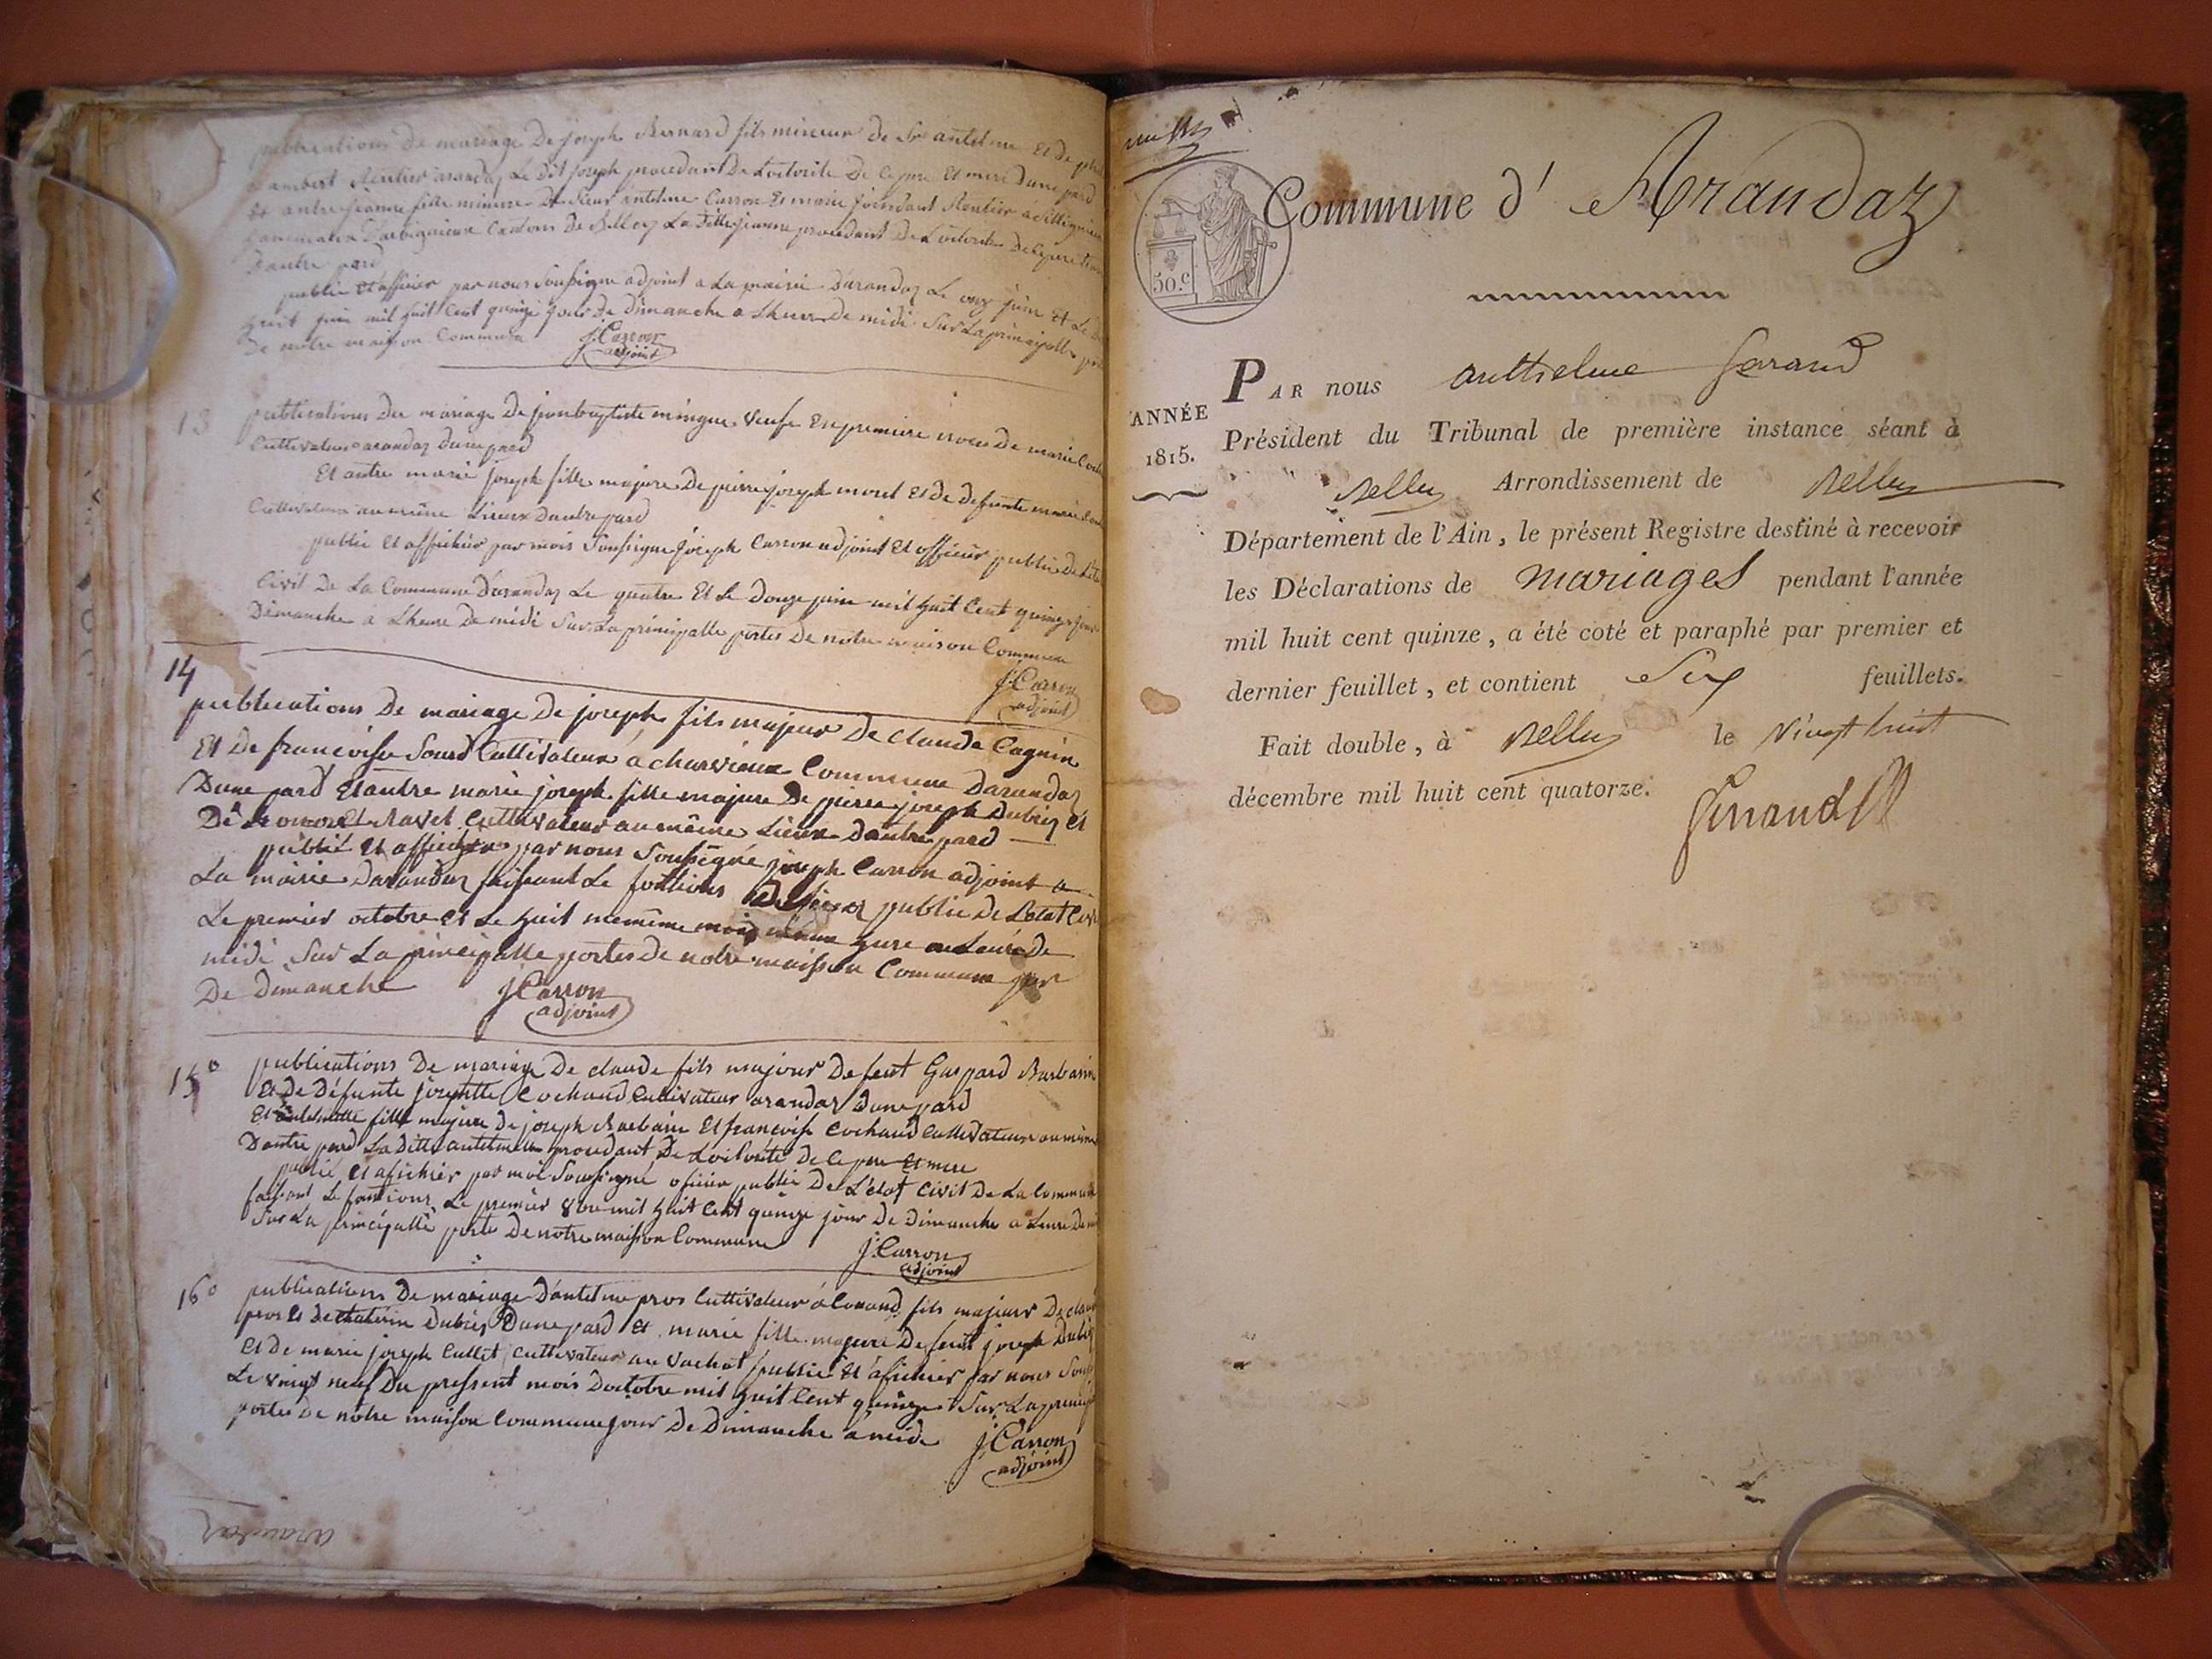 publications De mariage De joseph Bernard fils mineur De Sr antelme Et De
Lambert Rentier arandaz Le Dit joseph procedant De Lotorite De Ce pere Et mere Dune pard
Et autre jeanne fille mineure De Sieur antelme Carron Et marie Rentier a
Cantons De Belley La Ditte jeanne procedant De Lotorite De Ce pere
Dautre pard
publié Et afficier par nous Soussigne adjoint a La mairie Darandaz Le onz juin Et Le
huit juin mil huit Cent quinze jour De Dimanche a Lheure De midi Sur La principalle
De notre maison Commune J. Carron
adjoint
13 publications Du mariage De jeanbaptiste mingue veufe En premiere noces De marie
Cultivateur arandaz Dune pard
Et autre marie joseph fille majure De pierre joseph morel Et De Defunte marie
Cultivateur au même Lieux Dautre pard
publié Et affichéir par mois Soussigne joseph Carron adjoint Et officier public De
Civil De La Commune Darandaz Le quatre Et Le Douze juin mil huit Cent quinze jour
Dimanche a Lheure De midi Sur La principalle portes De notre maison Commune
J. Carron
adjoint
14
publications De mariage De joseph fils majeur De Claude Cagnin
Et De francoise Sourd Cultivateur á charvieux Commune Darandaz
Dune pard Et autre marie joseph fille majure De pierre joseph Dubiez Et
De Ravet Cultivateur au même Lieux Dautre pard
publié Et afficher par nous Soussigné joseph Carron adjoint a
La mairie Darandaz faissant Le fontions public De Letat Civil
Le premier octobre Et Le huit memême mois hure
midi Sur La principalle portes De notre maisson Commune jour
De Dimanche J. Carron
adjoint
15° publications De mariage De claude fils majour De feut Gaspard Barbarin
Et De Défunte josephtte Cochaud Cultivateur arandaz Dune pard
Et fille majure De joseph Barbarin Et francoise Cochaud Cultivateur au même
Dautre pard La Ditte antelmette procedant De Lotorité De Ce pere Et mere
publié Et afichéir par moi Soussigné oficier public De L'étot Civil De La Commune
faissant Le fontions Le premier 8bre mil huit Cent quinze jour De Dimanche a Leure De
Sur La principalle porte De notre maisson Commune J. Carron
adjoint
16° publications De mariage Dantelme pros Cultivateur á Conand fils majeur De
pros Et De Dubiez Dune pard Et marie fille majeure De feut joseph Dubiez
Et De marie joseph Cullet Cultivateur au vachat publié Et áfichéir par nous
Le vingt neuf Du pressent mois Doctobre mil huit Cent quinze Sur La
portes De notre maison Commune jour De Dimanche á midi J. Carron
adjoint
arandaz
Commune d' Arandaz
50.c
PAR nous anthelme ferrand
ANNÉE
1815.
Président du Tribunal de première instance séant à
Belley Arrondissement de Belley
Département de l'Ain, le présent Registre destiné à recevoir
les Déclarations de mariages pendant l'année
mil huit cent quinze, a été coté et paraphé par premier et
dernier feuillet, et contient Six feuillets.
Fait double, à Belley le vingt huit
décembre mil huit cent quatorze.
ferrand